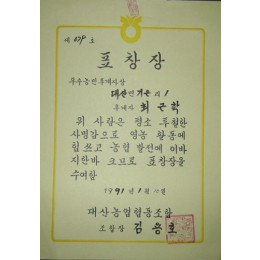 제 679 호
표창장
우수농민후계자상
대산면 기은리 1
후계자 최근학
위 사람은 평소 투철한
사명감으로 영농 활동에
힘쓰고 농협 발전에 이바
지한바 크므로 표창장을
수여함
1991년 1월
대산농업협동조합
조합장 김용호